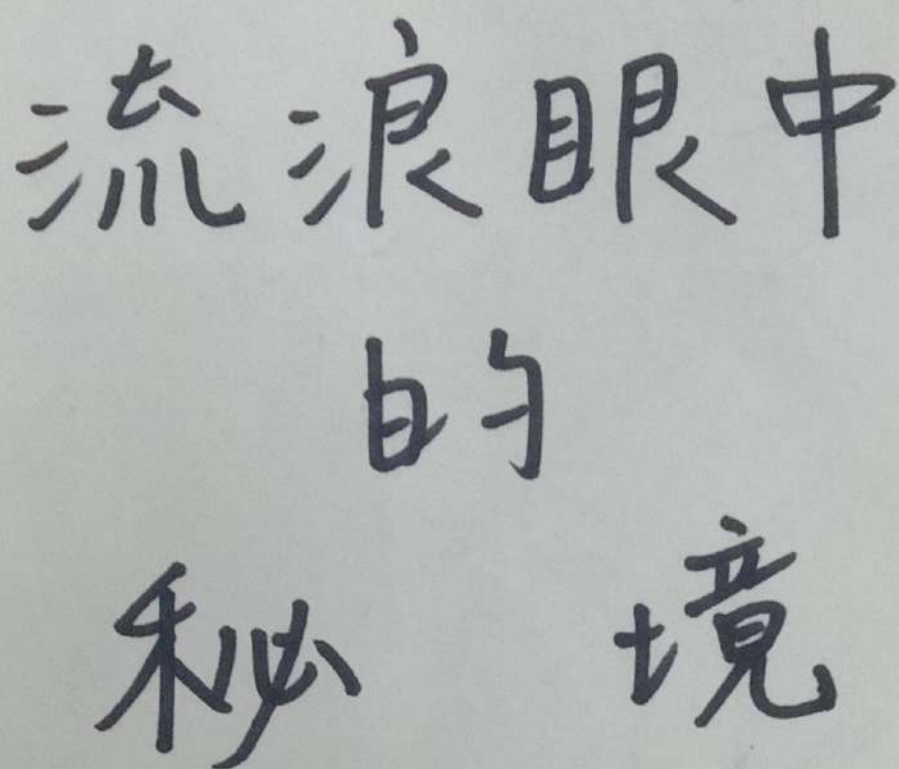 流浪眼中
的
秘境